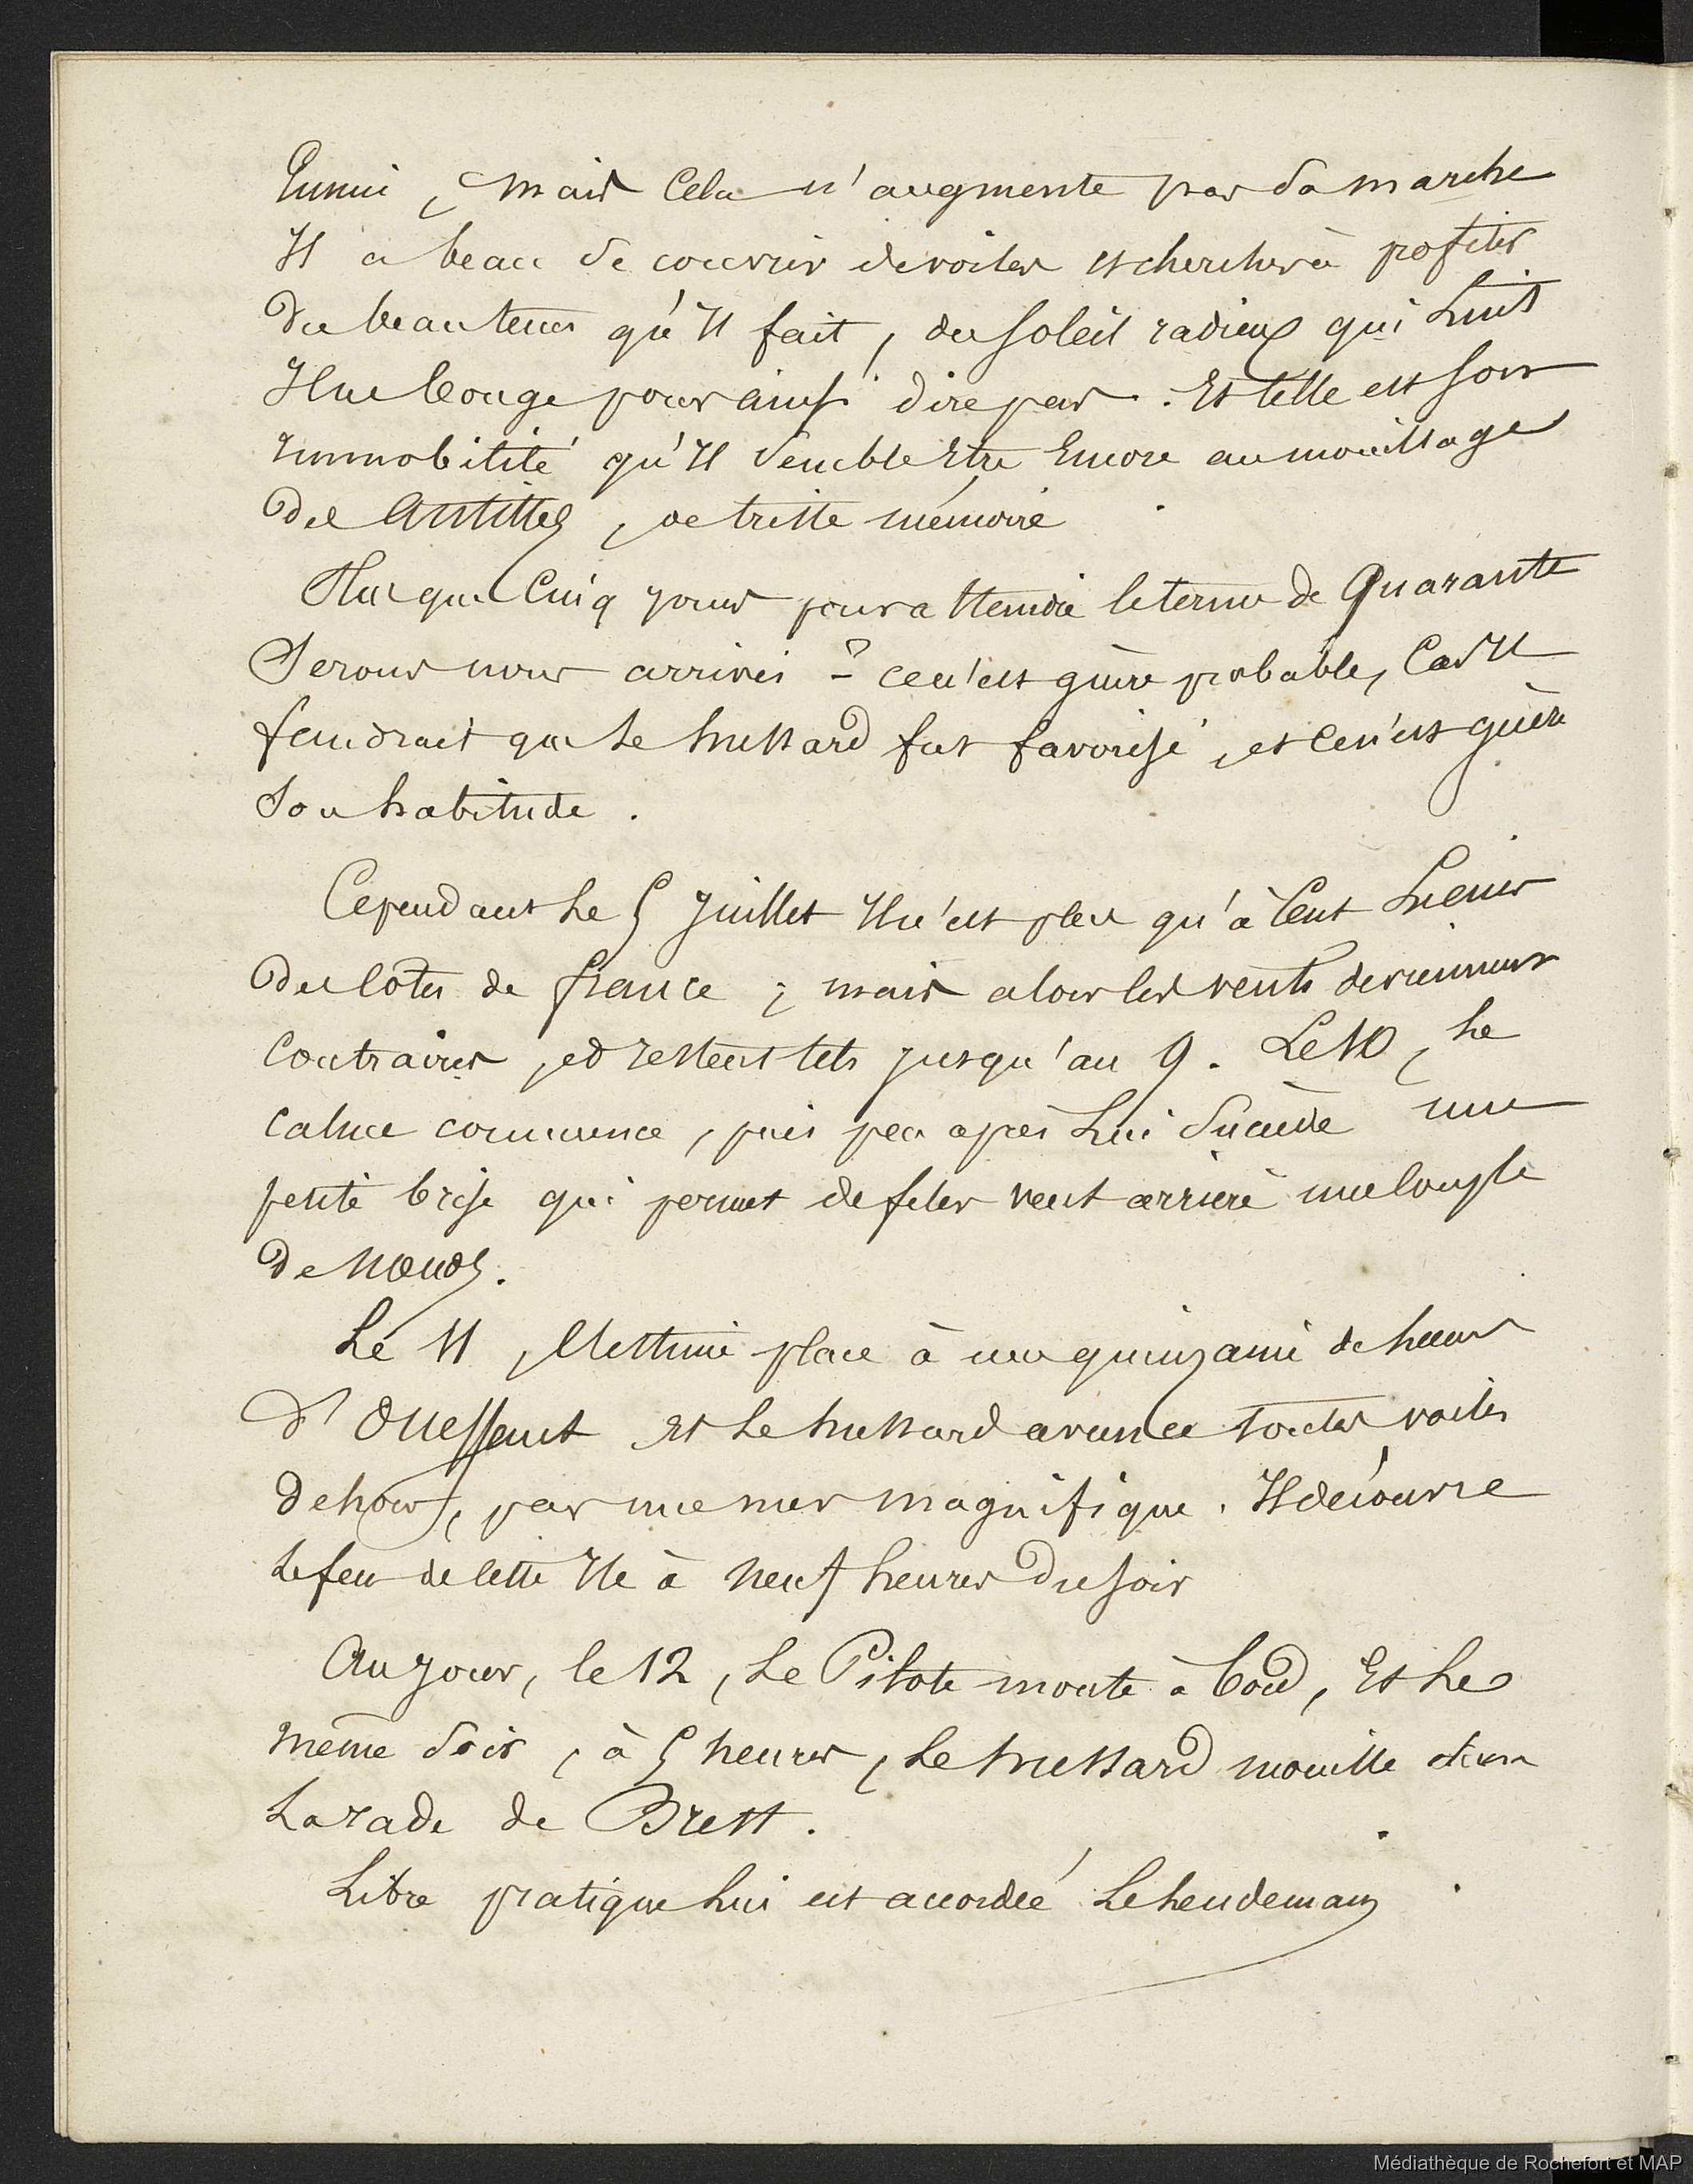 Ennui, mais cela n'augmente pas sa marche
Il a beau se couvrir de voiles et chercher à profiter
du beau tems qu'il fait, du soleil radieux qui luit
Il ne bouge pour ainsi dire pas. Et telle est son
immobilité qu'il semble être encore au mouillage
des Antilles, de triste mémoire
Plus que cinq jours pour atteindre le terme de Quarante
Serons nous arrivés ? ce n'est guère probable, car il
faudrait que le hussard fut favorisé, et ce n'est guère
son habitude.
Cependant le 5 Juillet il n'est plus qu'à cent lieues
des côtes de france ; mais alors les vents deviennent
contraires, et restent tels jusqu'au 9. Le 10, le
calme commence, puis peu après lui succède une
petite brise qui permet de filer vent arrière une couple
de nœuds.
Le 11, l'estime place à une quinzaine de lieues
d'Ouessant et le hussard avance toutes voiles
dehors, par une mer magnifique. Il découvre
le feu de cette île à neuf heures du soir
Au jour, le 12, le Pilote monte à bord, et le
même soir, à 5 heures, le hussard mouille dans
la rade de Brest.
Libre pratique lui est accordée le lendemain
Médiathèque de Rochefort et MAP